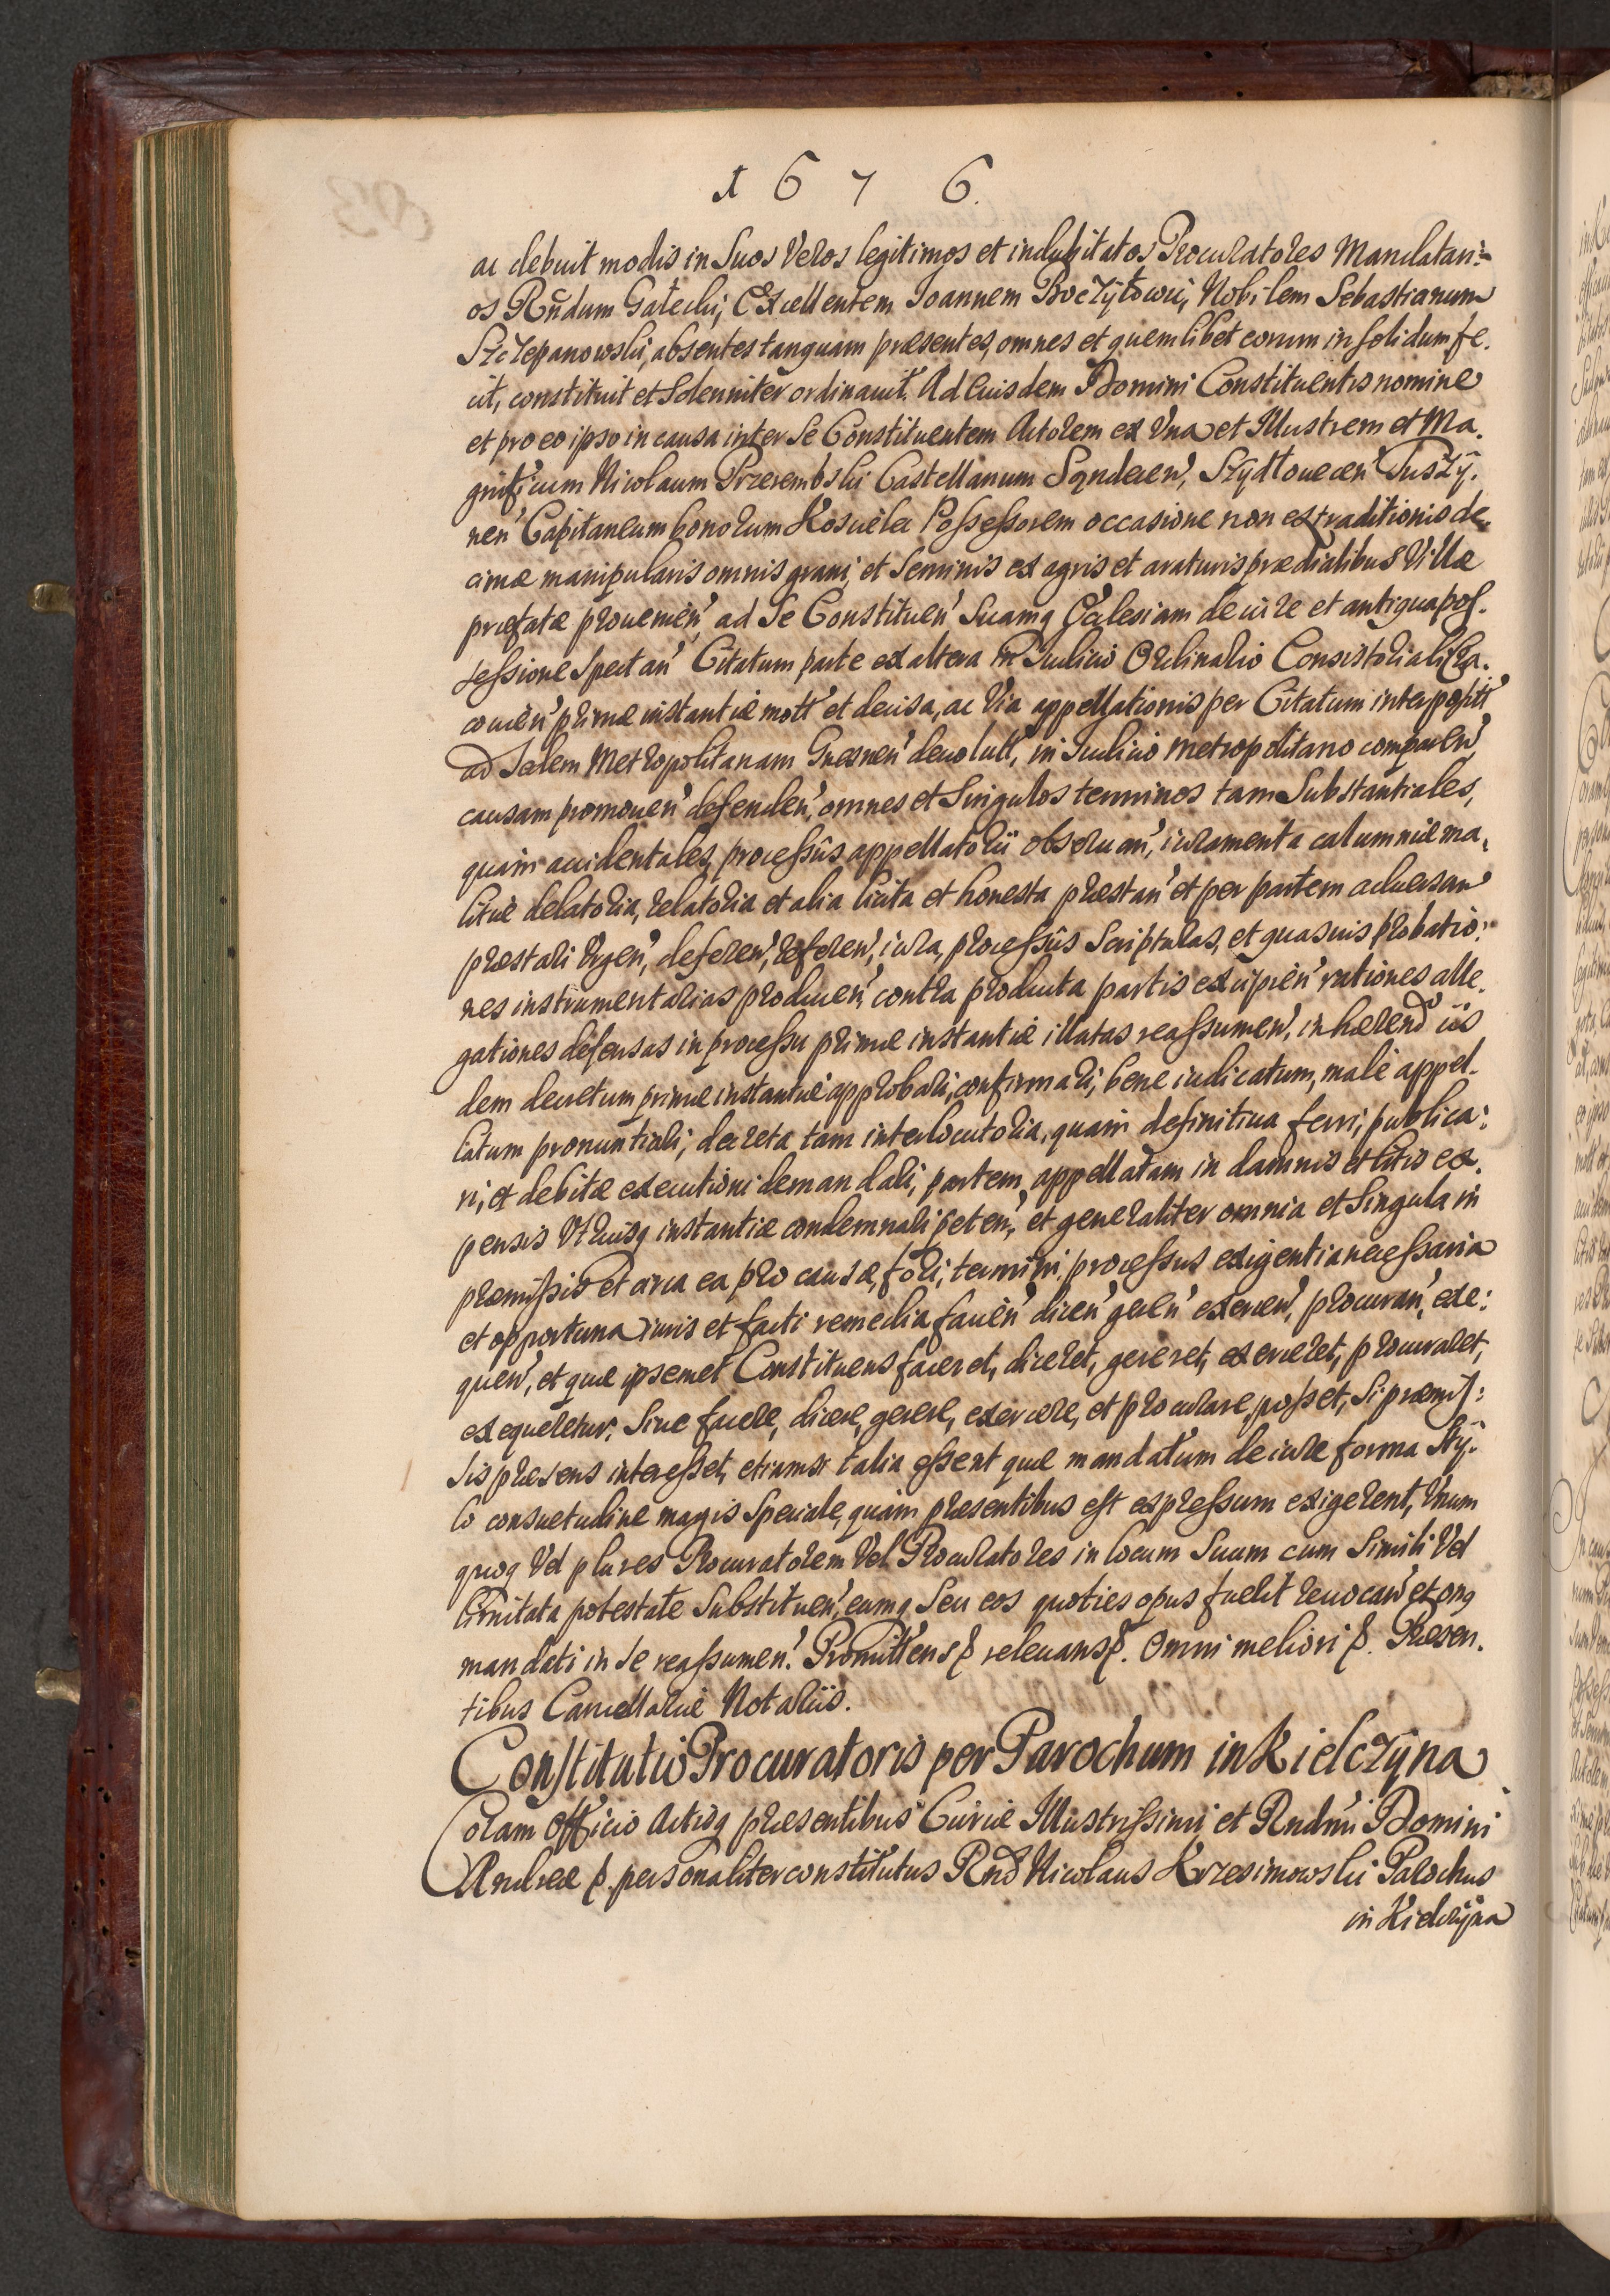 1676.
ac debuit modis in Suos Veros legitimos et indubitatos Procuratores Mandatari:
os Rndum Gałecki, Excellentem Joannem Boczyłowic, Nobilem Sebastianum
Szczepanowski, absentes tanquam præsentes, omnes et quemlibet eorum in solidum fe.
cit, constituit et Solenniter ordinauit. Ad Euisdem Domini Constituentis nomine
et pro eo ipso in causa inter Se Constituentem Actorem ex Vna et Illustrem et Ma.
gnificum Nicolaum Przerembski Castellanum Sąndecen', Szydłouecen' Tuszÿ.
nen' Capitaneum bonorum Possessorem occasione non extraditionis de.
cimæ manipularis omnis grani, et Seminis ex agris et araturis prædialibus Villæ
præfatæ prouenien' ad Se Constituen' Suamq Ecclesiam de iure et antiqua pos.
sessione Spectan' Citatum parte ex altera in Iudicio Ordinario Consistoriali Cra.
couien' primæ instantiæ mott' et decisa, ac Via appellationis per Citatum interposit'
ad Sedem Metropolitanam Gnesnen' deuolutt', in Iudicio Metropolitano comparen'
causam promouen' defenden', omnes et Singulos terminos tam Substantiales,
quàm accidentales, processûs appellatorii obseruan', iuramenta calumniæ ma.
litiæ delatoria, relatoria et alia licita et honesta præstan' et per partem aduersan'
præstari Vrgen', deferen', referen', iura, processûs Scripturas, et quasuis probatio:
nes instrumentarias producen', contra producta partis excipien' rationes alle.
gationes defensas in processu primæ instantiæ illatas reassumen', inhærend' iis
dem decretum primæ instantiæ approbari, confirmari, bene iudicatum, malè appel.
latum pronuntiari; decreta tam interlocutoria, quàm definitiua ferri, publica:
ri, et debitæ executioni demandari, partem appellatam in damnis et litis ex.
pensis Vtriusq instantiæ condemnari peten', et generaliter omnia et Singula in
præmissis et circa ea pro causæ, fori, termini, processus exigentia necessaria
et opportuna iuris et facti remedia facien' dicen' geren' exercen', procuran', exe:
quen', et quæ ipsemet Constituens faceret, diceret, gereret, exerceret, procuraret,
exequeretur. Siue facere, dicere, gerere, exercere, et procurare, posset, Si præmis:
sis præsens interesset, etiamsi talia essent quæ mandatum de iure forma Stÿ.
lo consuetudine magis Speciale, quàm præsentibus est expressum exigerent, Vnum
quoq Vel plures Procuratorem Vel Procuratores in locum Suum cum Simili Vel
limitata potestate Substituen', eumq Seu eos quoties opus fuerit reuocan' et onq
mandati in Se reassumen'. Promittens &. releuans &. Omni meliori &. Præsen.
tibus Cancellariæ Notariis.
Constitutio Procuratoris per Parochum in Kielczÿna
Coram Officio Actisq præsentibus Curiæ Illustrissimi et Rndmi Domini
Andreæ &. personaliter constitutus Rnd Nicolaus Krzesimowski Parochus
in Kielczÿna